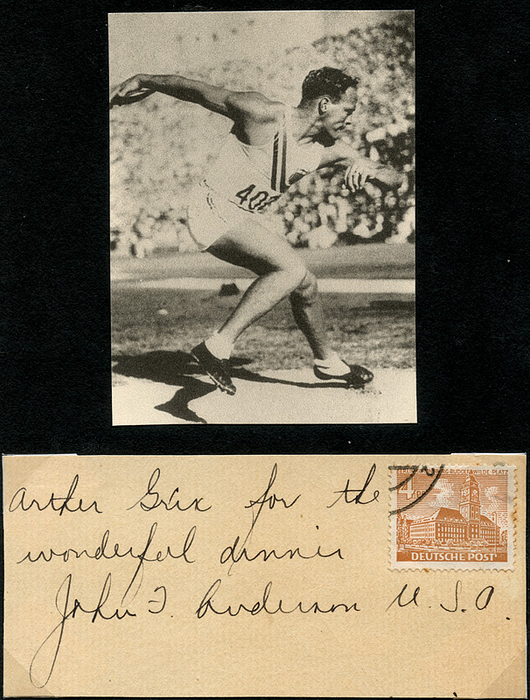 40
Arthur Grix for the
wonderful dinner
John F. Anderson U.S.A.
4
DEUTSCHE POST